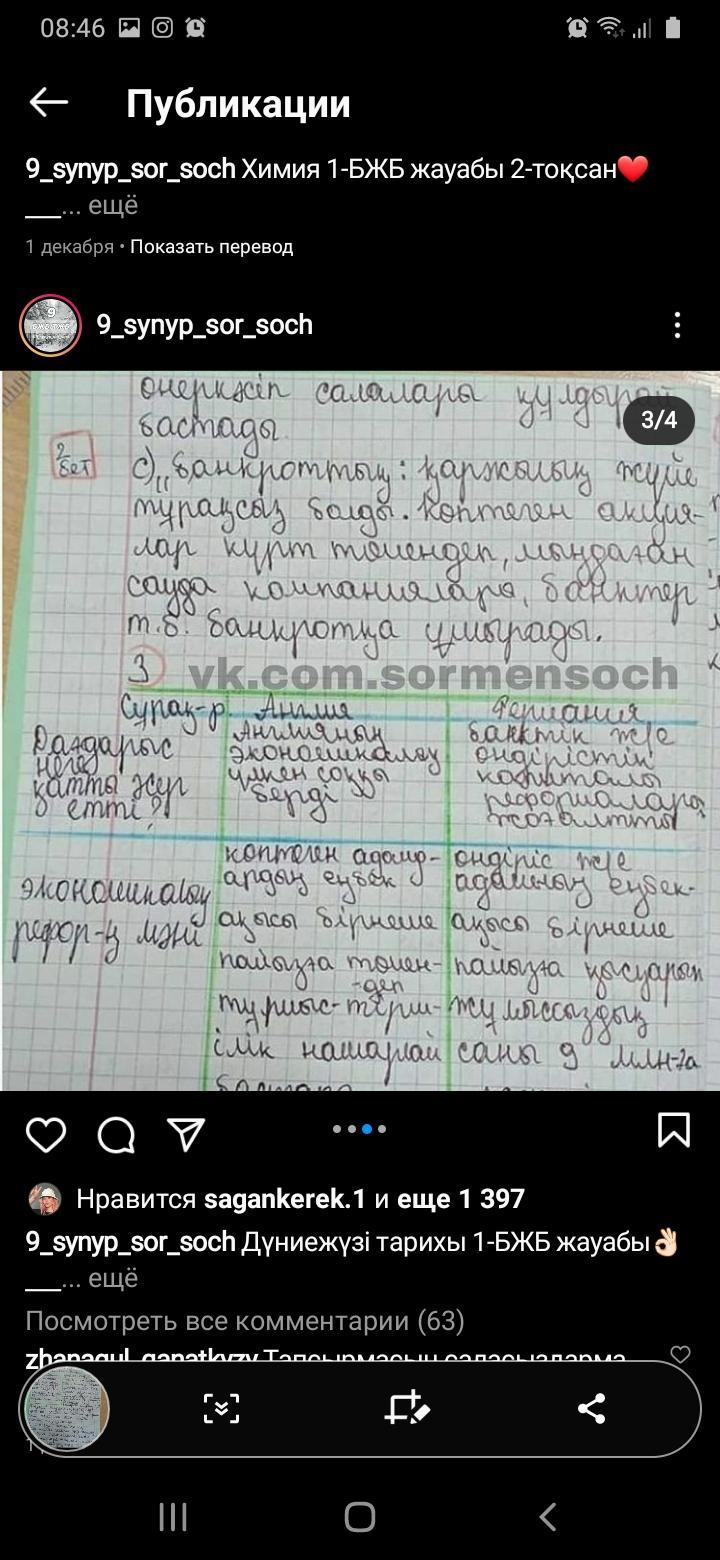 08:46
Публикации
9_synyp_sor_soch Химия 1-БЖБ жауабы 2-тоқсан❤️
___... ещё
1 декабря • Показать перевод
9_synyp_sor_soch
3/4
өнеркәсіп салалары құлдырай
бастады.
2 бет
с) „Банкроттық: қаржылық жүйе
тұрақсыз болды. Көптеген акция-
лар күрт төмендеп, мыңдаған
сауда компаниялары, банктер
т.б. банкротқа ұшырады.
3
vk.com.sormensoch
Сұрақ-р. Англия Германия
Дағдарыс неге қатты әсер етті?
Англияның
экономикалау
үлкен соққы
берді
банктік және
өндірістік
капиталы
реформалары
жоғалтты
экономикалау
рефор-ң мәні
көптеген адамд-
ардың еңбек
ақысы бірнеше
пайызға төмен-
-деп
тұрмыс-тірш-
ілік нашарлай
өндіріс және
адамның еңбек-
ақысы бірнеше
пайызға қысқарып
жұмыссыздық
саны 9 млн-ға
Нравится sagankerek.1 и еще 1 397
9_synyp_sor_soch Дүниежүзі тарихы 1-БЖБ жауабы👌🏻
___... ещё
Посмотреть все комментарии (63)
zhanagul_qanatkyzy